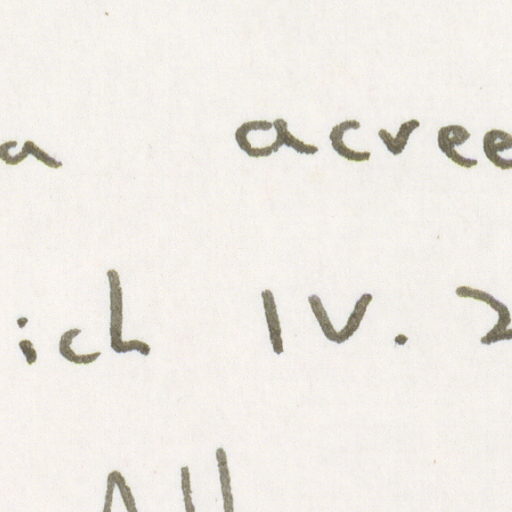 a acree
ich IV. 2
All